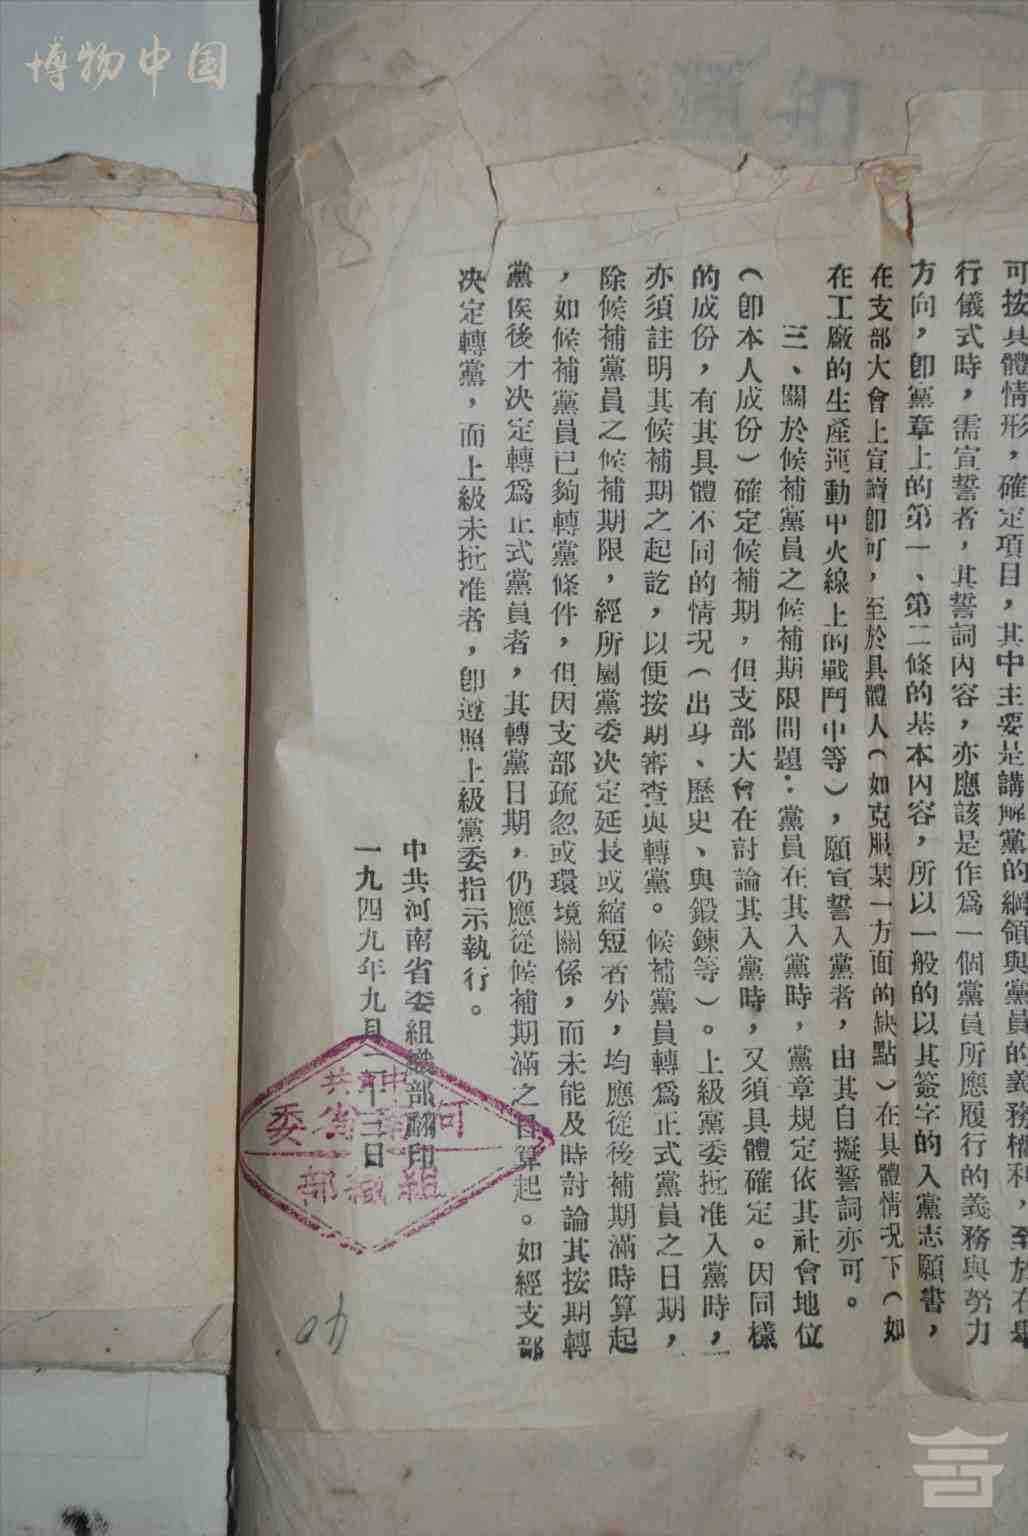 博物中国
可按具體情形，確定項目，其中主要是講解黨的綱領與黨員的義務權利，至於在舉
行儀式時，需宣誓者，其誓詞內容，亦應該是作爲一個黨員所應履行的義務與努力
方向，卽黨章上的第一、第二條的基本內容，所以一般的以其簽字的入黨志願書，
在支部大會上宣讀卽可，至於具體人（如克服某一方面的缺點）在具體情况下（如
在工廠的生產運動中火線上的戰鬥中等），願宣誓入黨者，由其自擬誓詞亦可。
三、關於候補黨員之候補期限問題：黨員在其入黨時，黨章規定依其社會地位
（卽本人成份）確定候補期，但支部大會在討論其入黨時，又須具體確定。因同樣
的成份，有其具體不同的情况（出身、歷史、與鍛鍊等）。上級黨委批准入黨時，
亦須註明其候補期之起訖，以便按期審查與轉黨。候補黨員轉爲正式黨員之日期，
除候補黨員之候補期限，經所屬黨委决定延長或縮短者外，均應從後補期滿時算起
，如候補黨員已夠轉黨條件，但因支部疏忽或環境關係，而未能及時討論其按期轉
黨俟後才决定轉爲正式黨員者，其轉黨日期，仍應從候補期滿之日算起。如經支部
决定轉黨，而上級未批准者，卽遵照上級黨委指示執行。
中共河南省委組織部翻印
一九四九年九月二十三日
中共
河南省委
組織部